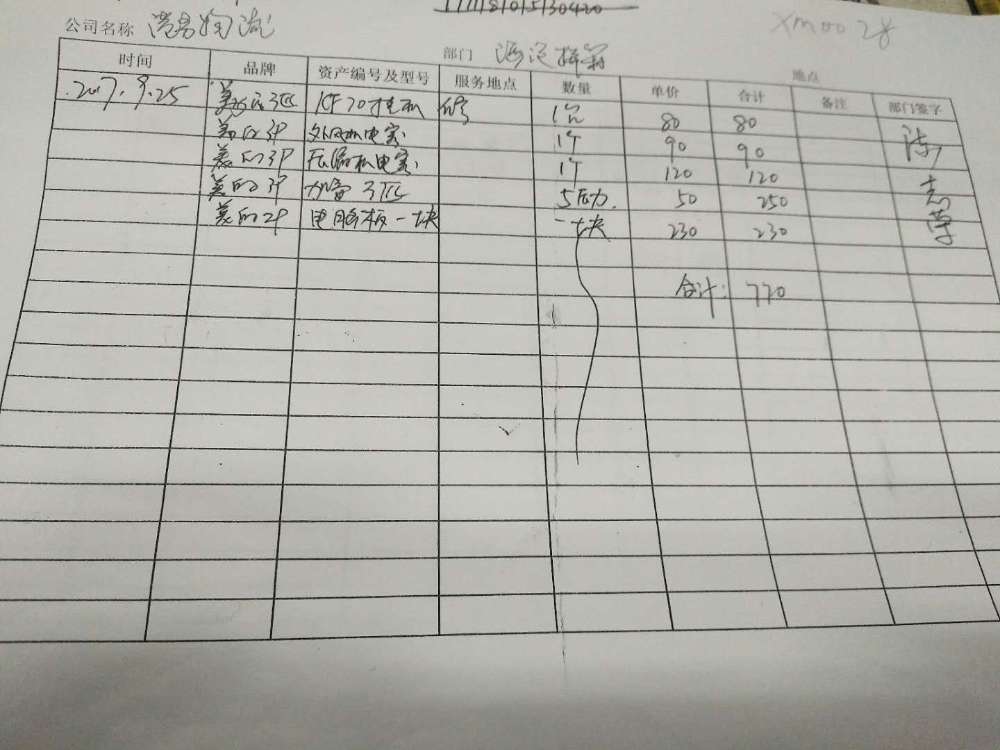 XM0028
公司名称 港易物流 部门
地点
时间 品牌 资产编号及型号 服务地点 数量 单价 合计 备注 部门签字
2017.9.25 KF 70挂机 1台 80 80
美的3P 外风机电容 1个 90 90
美的3P 压缩机电容 1个 120 120
美的3P 加雪 5压力 50 250
美的2P 电脑板一块 一块 230 230
合计: 770